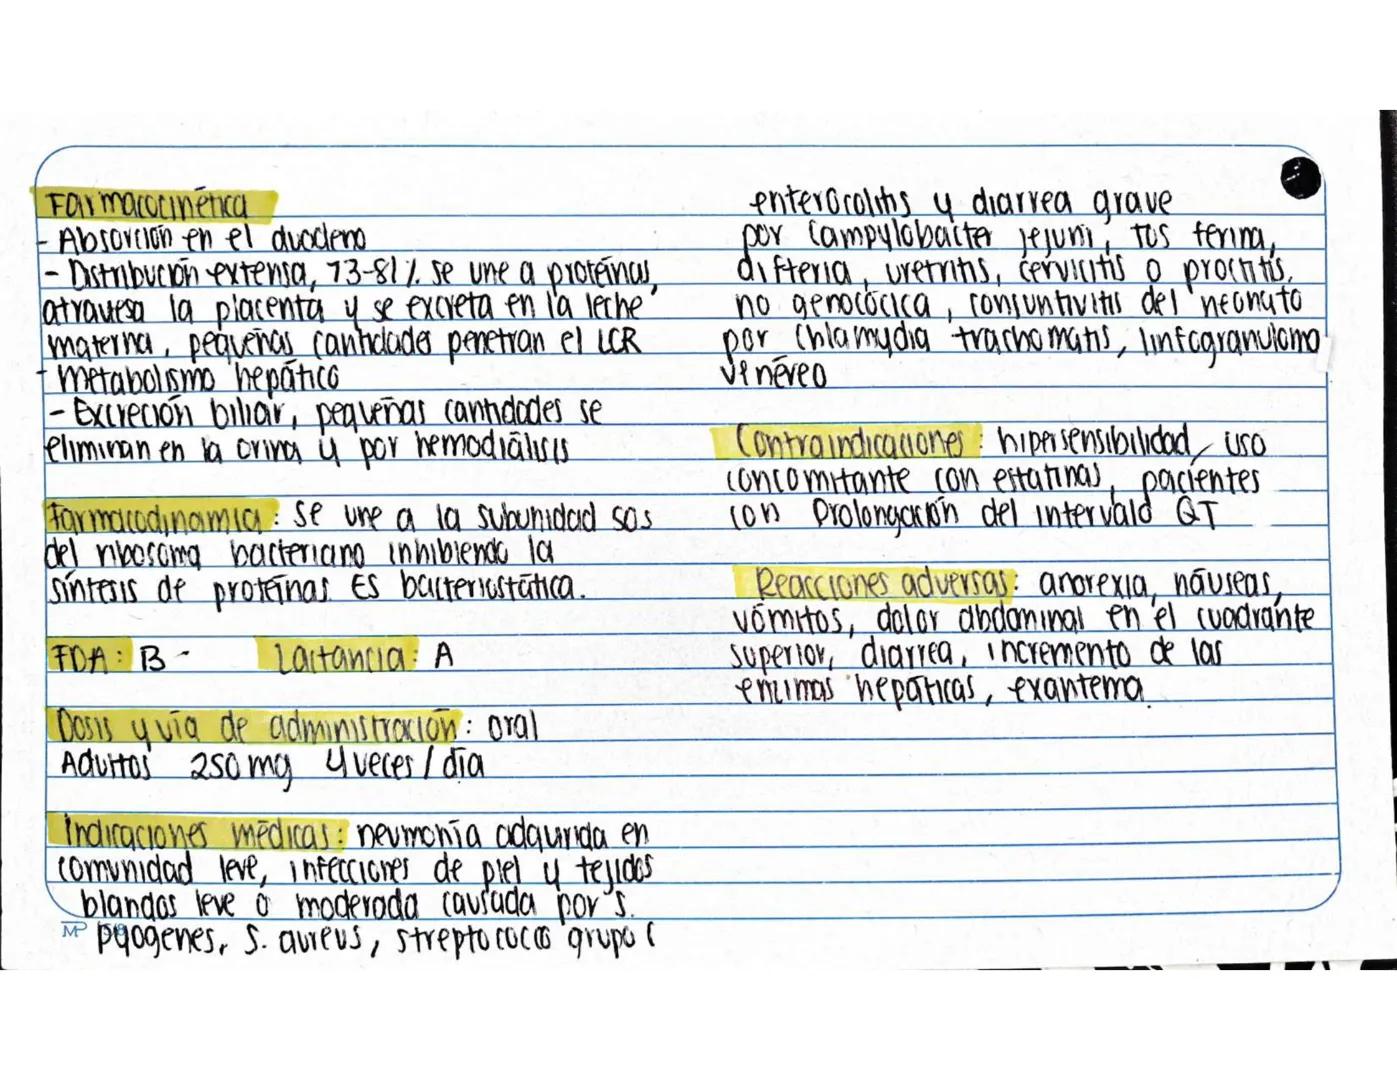 Farmacocinética
- Absorción en el duodeno
- Distribución extensa, 73-81% se une a proteínas,
atraviesa la placenta y se excreta en la leche
materna, pequeñas cantidades penetran el LCR
- Metabolismo hepático
- Excreción biliar, pequeñas cantidades se
eliminan en la orina y por hemodiálisis
Farmacodinamia: Se une a la subunidad 50s
del ribosoma bacteriano inhibiendo la
síntesis de proteínas. Es bacteriostática.
FDA: B - Lactancia: A
Dosis y via de administración: oral
Adultos 250 mg 4 veces / día
Indicaciones médicas: neumonía adquirida en
comunidad leve, infecciones de piel y tejidos
blandos leve o moderada causada por S.
pyogenes, S. aureus, streptococcos grupo C
MP
enterocolitis y diarrea grave
por Campylobacter jejuni, tos ferina,
difteria, uretritis, cervicitis o proctitis,
no genocócica, conjuntivitis del neonato
por Chlamydia trachomatis, linfogranuloma
venéreo
Contraindicaciones: hipersensibilidad, uso
concomitante con estatinas, pacientes
con Prolongación del intervalo QT
Reacciones adversas: anorexia, náuseas,
vómitos, dolor abdominal en el cuadrante
superior, diarrea, incremento de las
enzimas hepáticas, exantema